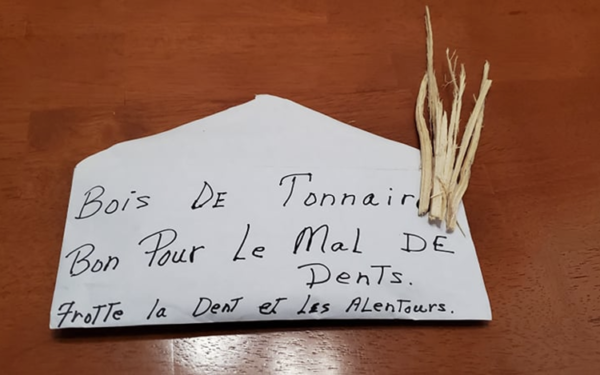 Bois DE Tonnair
Bon Pour Le Mal DE
Dents.
Frotte la Dent et Les Alentours.